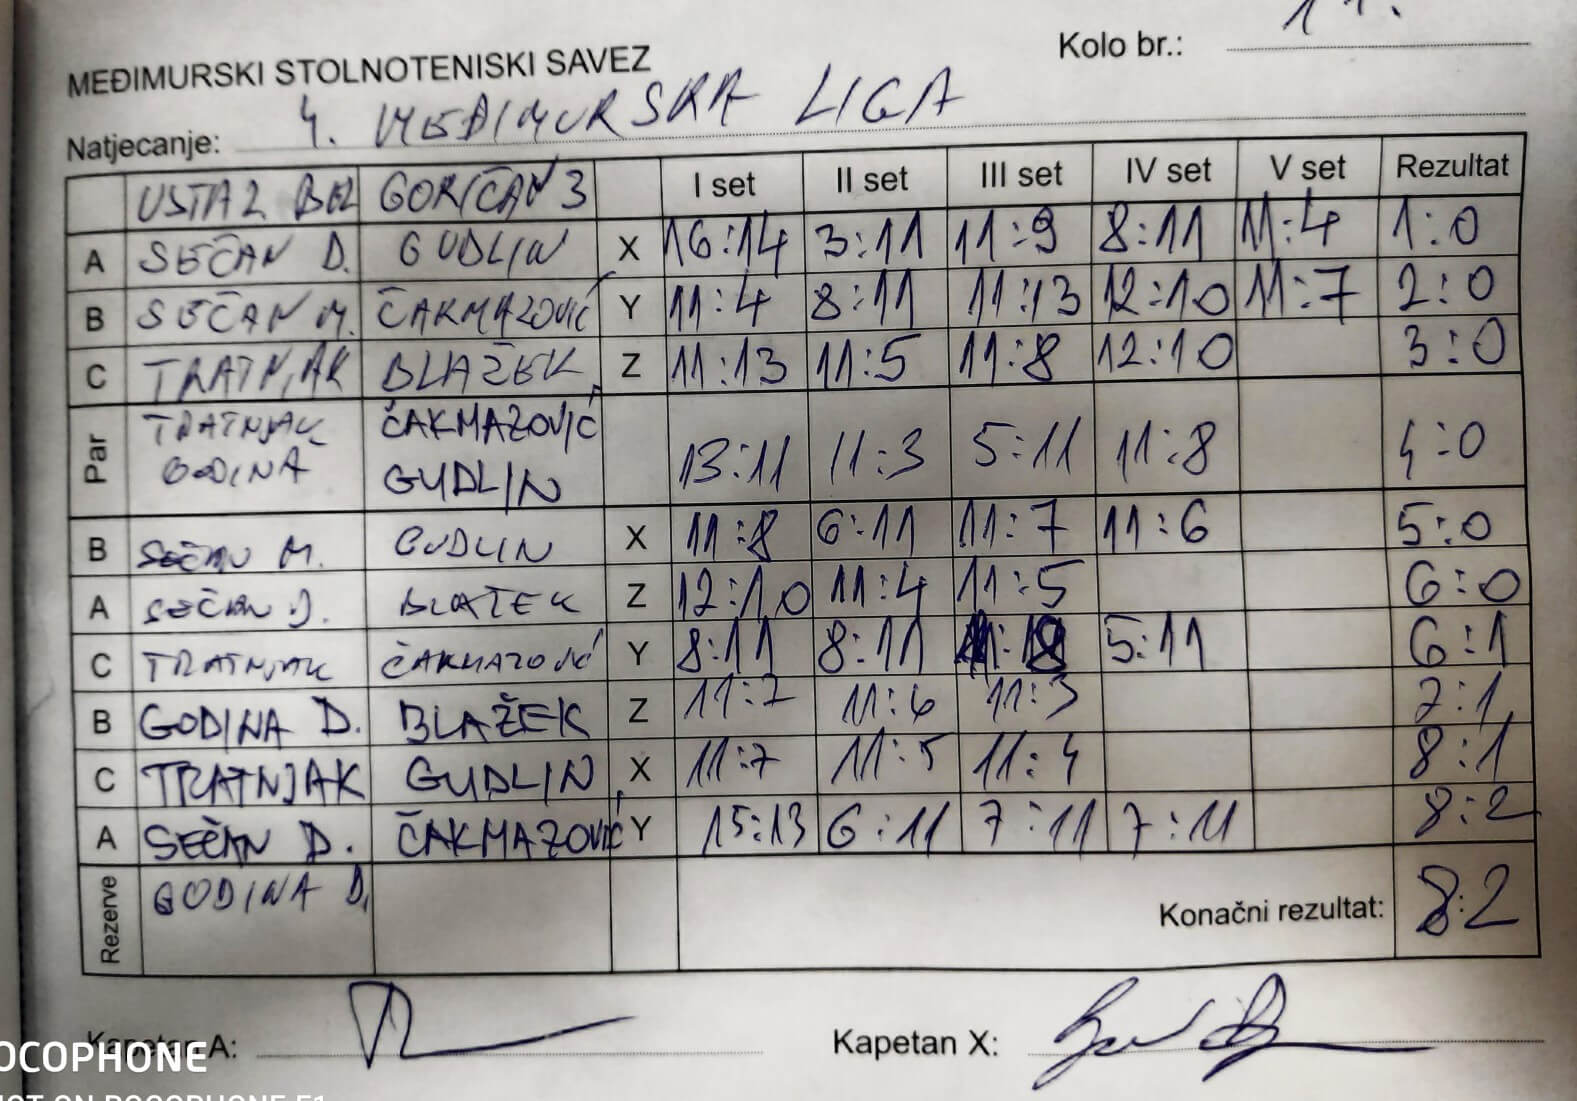 Kolo br.: 11.
MEĐIMURSKI STOLNOTENISKI SAVEZ
Natjecanje: 4. MEĐIMURSKA LIGA
USTAZ BEZ GORIČAN 3 I set II set III set IV set V set Rezultat
A SEČAN D. GUDLIN X 16:14 3:11 11:9 8:11 11:4 1:0
B SEČAN M. ČAKMAZOVIĆ Y 11:4 8:11 11:13 12:10 11:7 2:0
C TRATNJAK BLAŽEK Z 11:13 11:5 11:8 12:10 3:0
Par TRATNJAK ČAKMAZOVIĆ 13:11 11:3 5:11 11:8 4:0
GODINA GUDLIN
B SEČAN M. GUDLIN X 11:8 6:11 11:7 11:6 5:0
A SEČAN D. BLAŽEK Z 12:10 11:4 11:5 6:0
C TRATNJAK ČAKMAZOVIĆ Y 8:11 8:11 5:11 6:1
B GODINA D. BLAŽEK Z 11:7 11:6 11:3 7:1
C TRATNJAK GUDLIN X 11:7 11:5 11:4 8:1
A SEČAN D. ČAKMAZOVIĆ Y 15:13 6:11 7:11 7:11 8:2
Rezerve GODINA D. Konačni rezultat: 8:2
Kapetan A: Kapetan X:
OCOPHONE